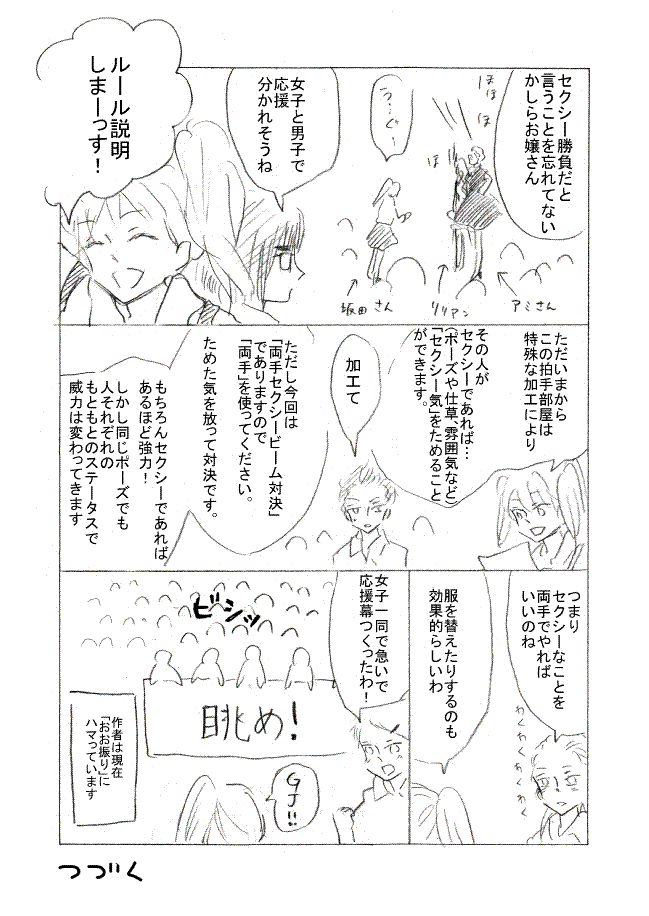 セクシー勝負だと
言うことを忘れてない
かしらお嬢さん
ほほほ
ほほ
う…ぐ…
アミさん
リリアン
坂田さん
女子と男子で
応援
分かれそうね
ルール説明
しまーっす！
ただいまから
この拍手部屋は
特殊な加工により
その人が
セクシーであれば…
（ポーズや仕草、雰囲気など）
「セクシー気」をためること
ができます。
加工て
ただし今回は
「両手セクシービーム対決」
でありますので
「両手」を使ってください。
ためた気を放って対決です。
もちろんセクシーであれば
あるほど強力！
しかし同じポーズでも
人それぞれの
もともとのステータスで
威力は変わってきます
つまり
セクシーなことを
両手でやれば
いいのね
わくわくわくわく
服を替えたりするのも
効果的らしいわ
女子一同で急いで
応援幕つくったわ！
ビシッ
眺め！
GJ!!
作者は現在
「おお振り」に
ハマっています
つづく